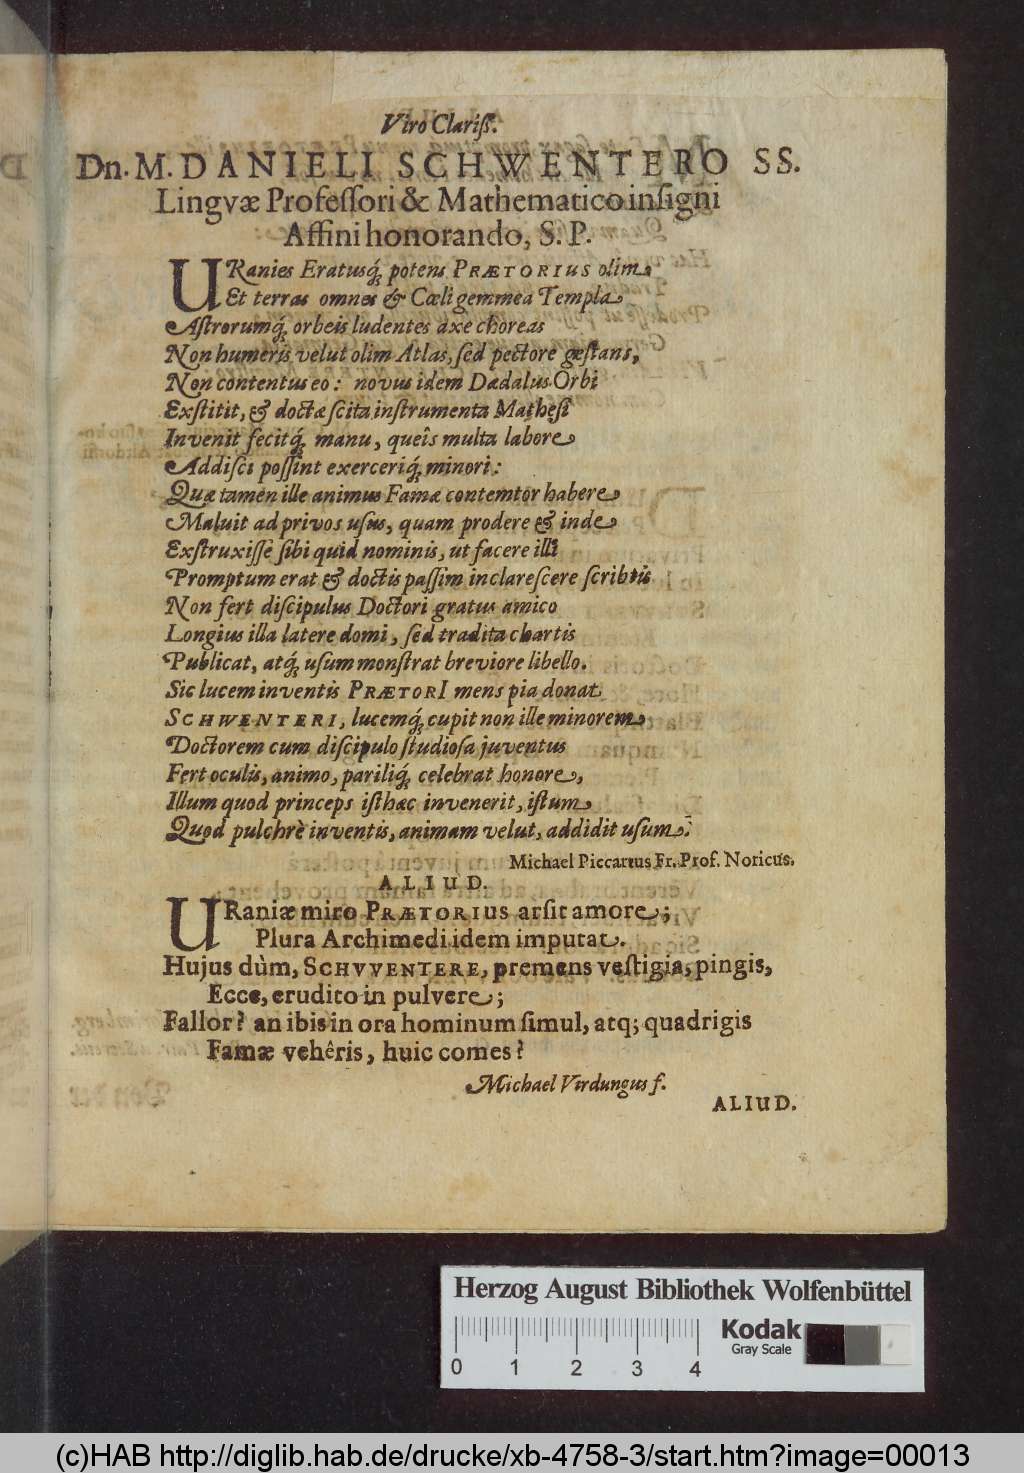 Viro Clariſſ.
Dn. M. DANIELI SCHWENTERO SS.
Lingvæ Profeſſori & Mathematico inſigni
Affini honorando, S. P.
URanies Eratusq́; potens PRÆTORIUS olim
Et terras omnes & Cœli gemmea Templa
Aſtrorumq́; orbeis ludentes axe choreas
Non humeris velut olim Atlas, ſed pectore geſtans,
Non contentus eo: novus idem Dædalus Orbi
Exſtitit, & doctæ ſcita inſtrumenta Matheſi
Invenit fecitq́; manu, queîs multa labore
Addiſci poſſint exerceriq́; minori:
Quæ tamen ille animus Famæ contemtor habere
Maluit ad privos uſus, quam prodere & inde
Exſtruxiſſe ſibi quid nominis, ut facere illi
Promptum erat & doctis paſſim inclareſcere ſcribtis
Non fert diſcipulus Doctori gratus amico
Longius illa latere domi, ſed tradita chartis
Publicat, atq́; uſum monſtrat breviore libello.
Sic lucem inventis PRÆTORI mens pia donat
SCHWENTERI, lucemq́; cupit non ille minorem
Doctorem cum diſcipulo ſtudioſa juventus
Fert oculis, animo, pariliq́; celebrat honore,
Illum quod princeps iſthæc invenerit, iſtum
Quod pulchrè inventis, animam velut, addidit uſum.
Michael Piccartus Fr. Prof. Noricus.
ALIUD.
URaniæ miro PRÆTORIus arſit amore;
Plura Archimedi idem imputat.
Hujus dùm, SCHVVENTERE, premens veſtigia, pingis,
Ecce, erudito in pulvere;
Fallor? an ibis in ora hominum ſimul, atq; quadrigis
Famæ vehêris, huic comes?
Michael Virdungus f.
ALIUD.
Herzog August Bibliothek Wolfenbüttel
Kodak
Gray Scale
0 1 2 3 4
(c)HAB http://diglib.hab.de/drucke/xb-4758-3/start.htm?image=00013